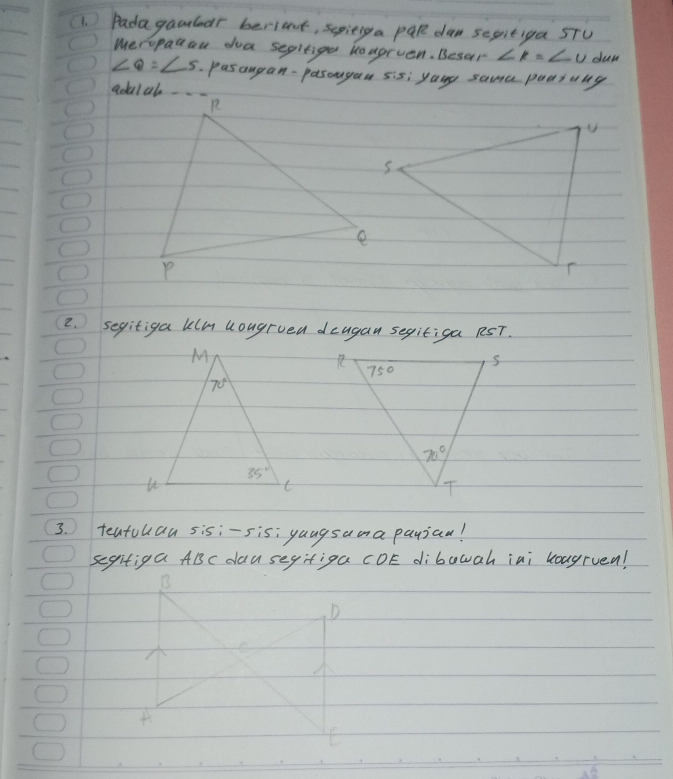 1. Pada gambar berikut, segitiga PQR dan segitiga STU
merupakan dua segitiga kongruen. Besar ∠R = ∠U dan
∠Q = ∠S. pasangan-pasangan sisi yang sama panjang
adalah ....
R
U
S
Q
P
T
2. segitiga klm kongruen dengan segitiga RST.
M
R
S
70°
75°
70°
35°
K
L
T
3. tentukan sisi-sisi yang sama panjan!
segitiga ABC dan segitiga CDE dibawah ini kongruen!
B
D
C
A
E